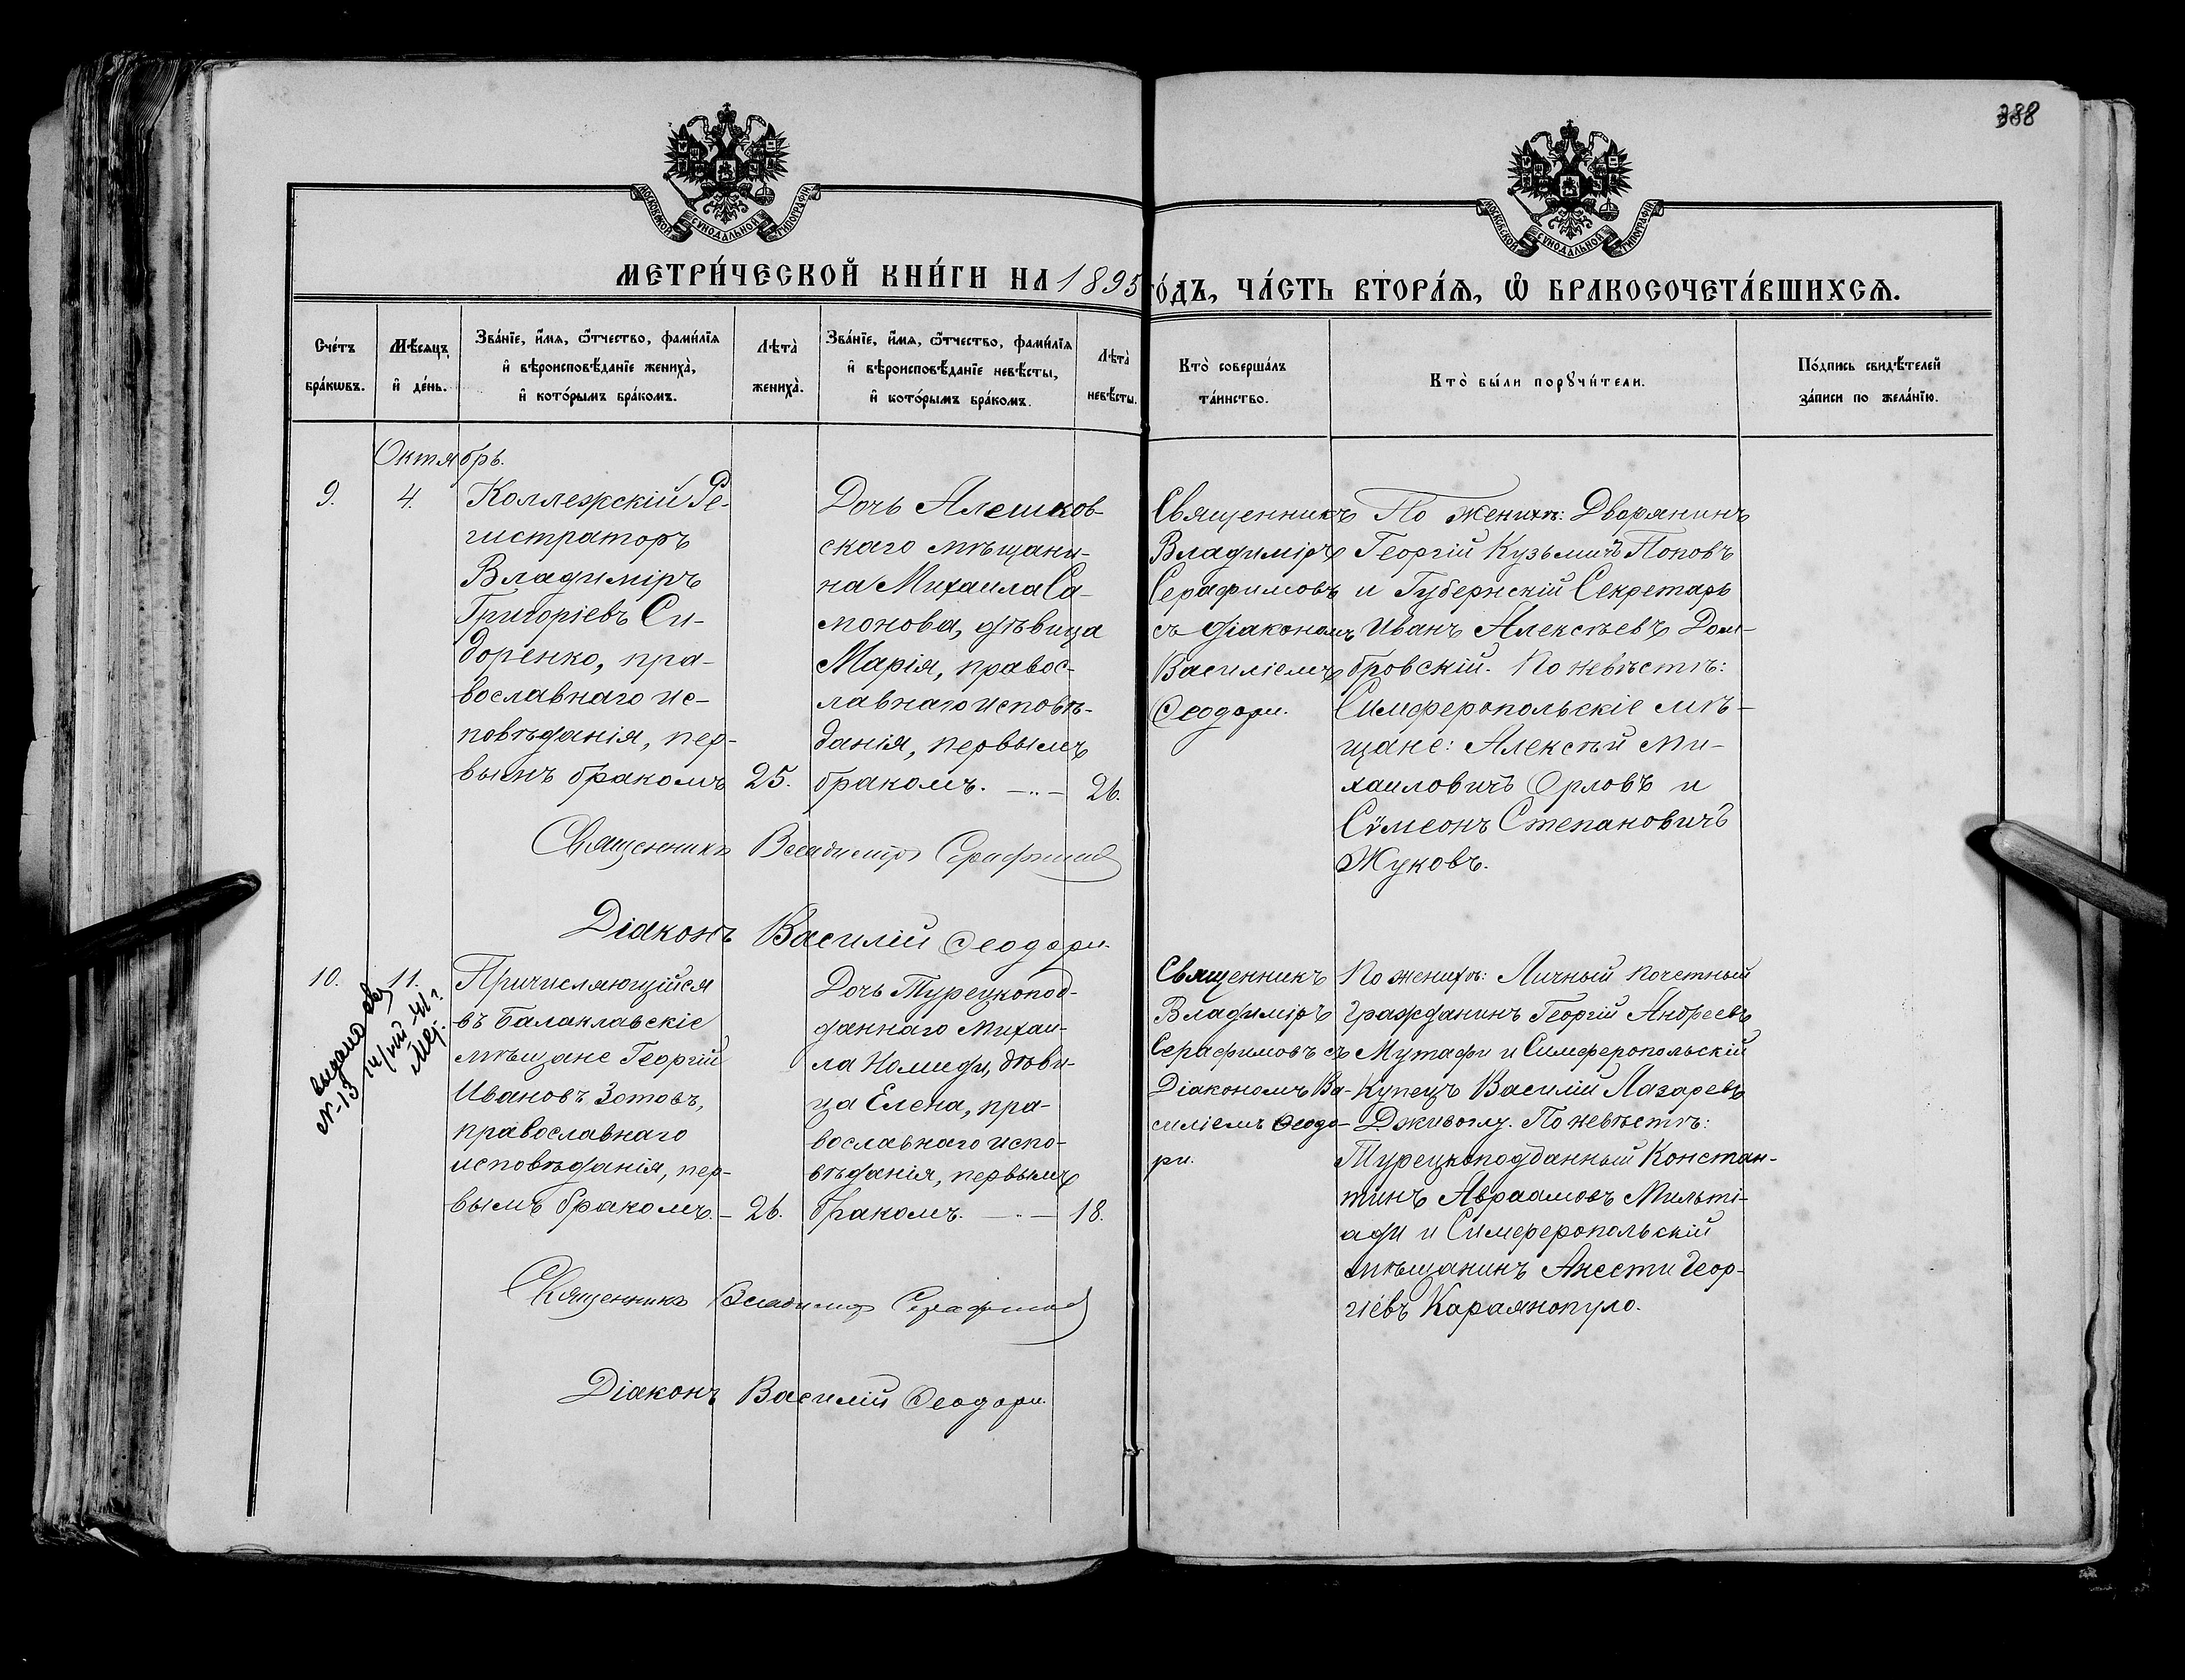 388
МОСКОВСКОЙ СѴНОДАЛЬНОЙ ТИПОГРАФІИ
МОСКОВСКОЙ СѴНОДАЛЬНОЙ ТИПОГРАФІИ
МЕТРИ́ЧЕСКОЙ КНИ́ГИ НА 1895 ГО́ДЪ, ЧА́СТЬ ВТОРА́Я, Ѡ БРАКОСОЧЕТА́ВШИХСЯ.
Сче́тъ
бра́кѡвъ.
Мѣ́сяцъ
и҆ де́нь.
Зва́нїе, и҆́мя, ѻ҆́тчество, фами́лїя
и҆ вѣроисповѣ́данїе жениха̀,
и҆ кото́рымъ бра́комъ.
Лѣта̀
жениха̀.
Зва́нїе, и҆́мя, ѻ҆́тчество, фами́лїя
и҆ вѣроисповѣ́данїе невѣ́сты,
и҆ кото́рымъ бра́комъ.
Лѣта̀
невѣ́сты.
Кто̀ соверша́лъ
та́инство.
Кто̀ бы́ли порꙋчи́тели.
По́дпись свидѣ́телей
за́писи по жела́нїю.
Октябрь.
9.
4.
Коллежскій Ре-
гистраторъ
Владиміръ
Григоріевъ Си-
доренко, пра-
вославнаго ис-
повѣданія, пер-
вымъ бракомъ
25.
Дочь Алешков-
скаго мѣщани-
на Михаила Са-
монова, дѣвица
Марія, правос-
лавнаго исповѣ-
данія, первымъ
бракомъ.
26.
Священникъ
Владиміръ
Серафимовъ
съ діакономъ
Василіемъ
Ѳеодори.
По женихѣ: Дворянинъ
Георгій Кузьмичъ Поповъ
и Губернскій Секретарь
Иванъ Алексѣевъ Дом-
бровскій. По невѣстѣ:
Симферопольскіе мѣ-
щане: Алексѣй Ми-
хаиловичъ Орловъ и
Сѷмеонъ Степановичъ
Жуковъ.
Священникъ Владиміръ Серафимовъ
Діаконъ Василій Ѳеодори.
10.
11.
выдано
N-13
Причисляющійся
въ Балаклавскіе
мѣщане Георгій
Ивановъ Зотовъ,
православнаго
исповѣданія, пер-
вымъ бракомъ.
26.
Дочь Турецкопод-
даннаго Михаи-
ла Номиди, дѣви-
ца Елена, пра-
вославнаго испо-
вѣданія, первымъ
бракомъ.
18.
Священникъ
Владиміръ
Серафимовъ съ
Діакономъ Ва-
силіемъ Ѳеодо-
ри.
По женихѣ: Личный почетный
гражданинъ Георгій Андреевъ
Мутафи и Симферопольскій
Купецъ Василій Лазаревъ
Дживоглу. По невѣстѣ:
Турецкоподданный Констан-
тинъ Авраамовъ Мильті-
ади и Симферопольскій
мѣщанинъ Анести Геор-
гіевъ Караянопуло.
Священникъ Владиміръ Серафимовъ
Діаконъ Василій Ѳеодори.